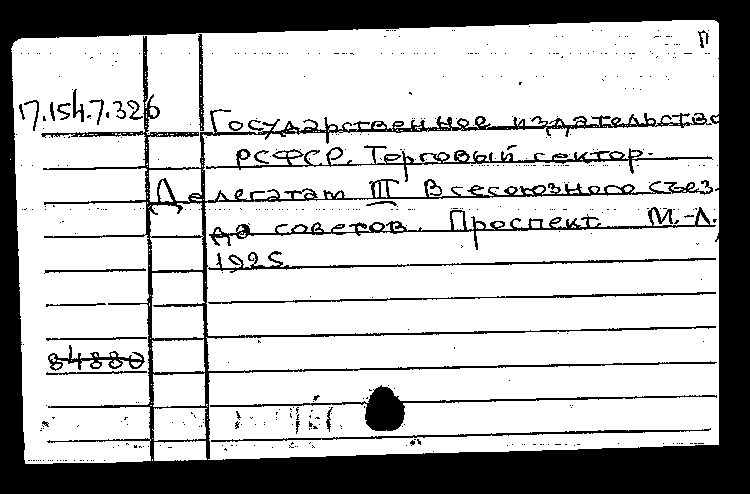 П
17.154.7.326
Государственное издательство
РСФСР. Торговый сектор.
Делегатам III Всесоюзного съез-
да советов. Проспект. М.-Л.,
1925.
84880